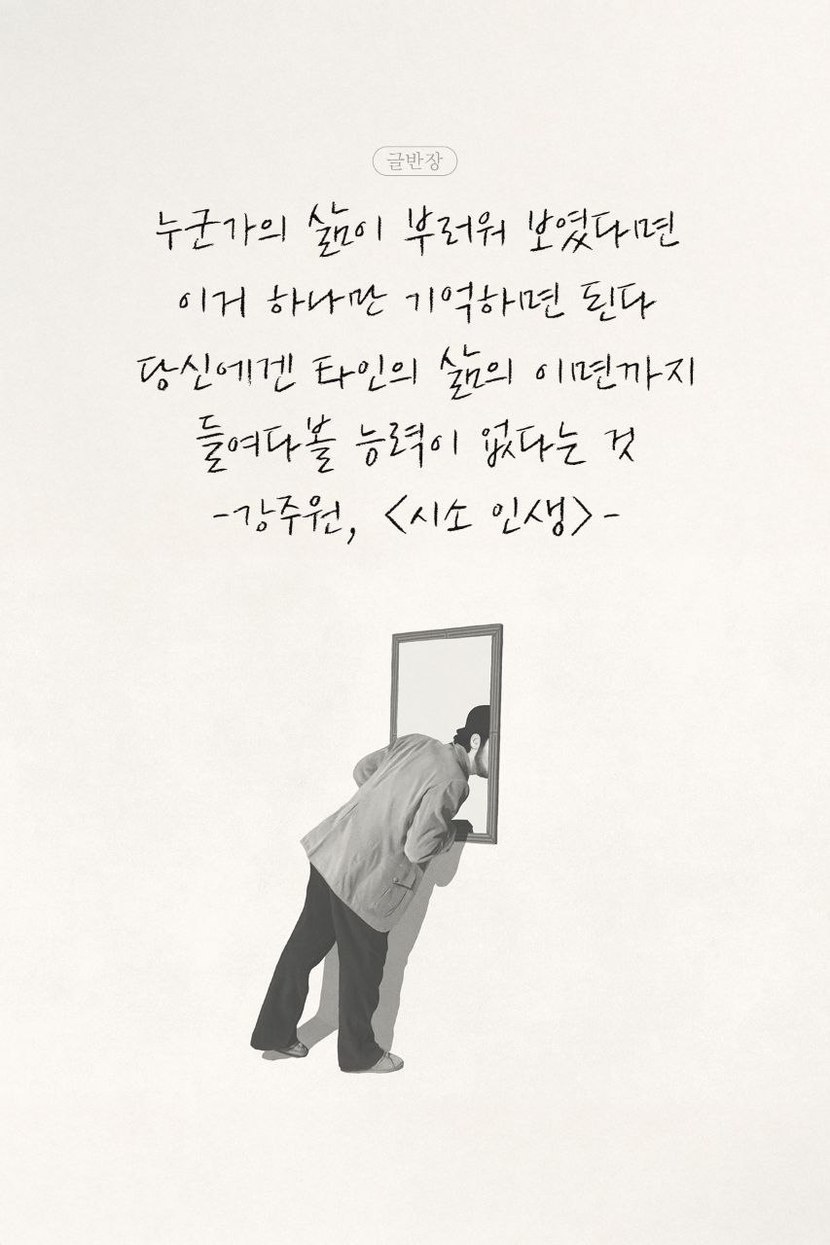 글반장
누군가의 삶이 부러워 보였다면
이거 하나만 기억하면 된다
당신에겐 타인의 삶의 이면까지
들여다볼 능력이 없다는 것
-강주원, <시소 인생>-